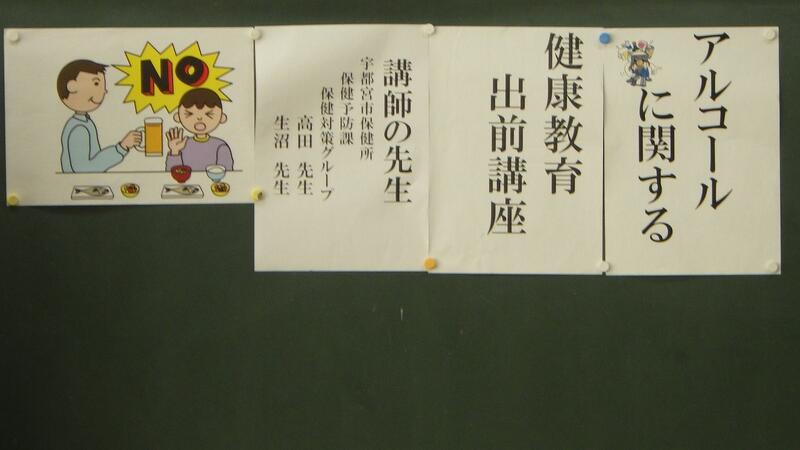 アルコール
に関する
健康教育
出前講座
講師の先生
宇都宮市保健所
保健予防課
保健対策グループ
高田 先生
生沼 先生
NO